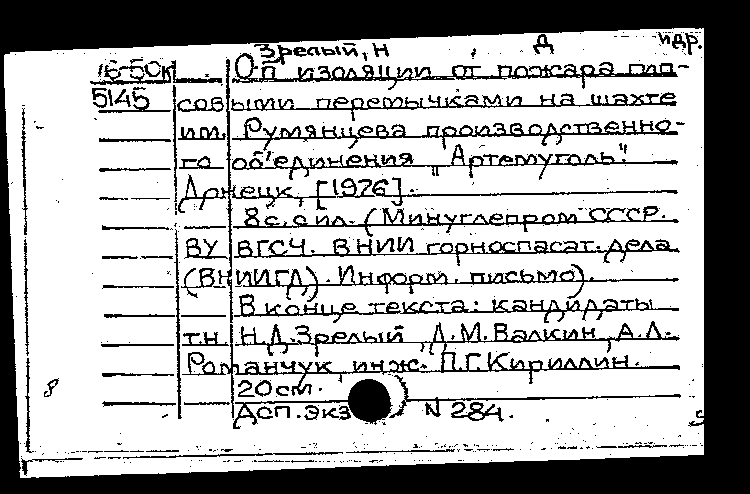 Зрелый, Н Д и др.
16-50К Оп изоляции от пожара гип-
5145 совыми перемычками на шахте
им. Румянцева производственно-
го об'единения „Артемуголь".
Донецк, [1976].
8 с. с ил. (Минуглепром СССР.
ВУ ВГСЧ. ВНИИ горноспасат. дела
(ВНИИГД). Информ. письмо).
В конце текста: кандидаты
т.н. Н.Д. Зрелый, Д.М. Валкин, А.Л.
Романчук, инж. П.Г. Кириллин.
20 см.
8
Дсп. экз N 284.